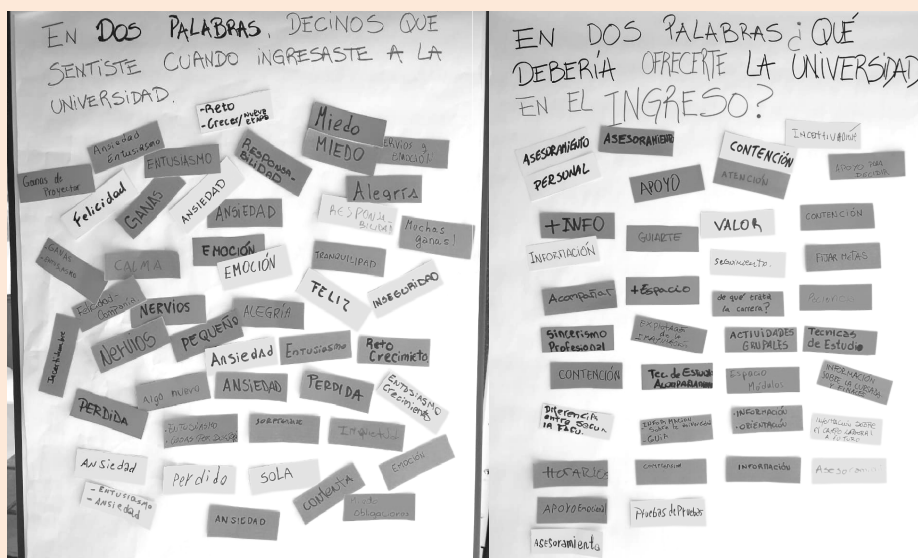 EN DOS PALABRAS, DECINOS QUE
SENTISTE CUANDO INGRESASTE A LA
UNIVERSIDAD.
-Reto
-Crecer/NUEVA
ETAPA
Miedo
MIEDO
NERVIOS y
EMOCIÓN
Ansiedad
Entusiasmo
ENTUSIASMO
RESPONSA-
BILIDAD
Ganas de
Proyectar
Felicidad
GANAS
ANSIEDAD
Alegris
ANSIEDAD
RESPONSA-
BILIDAD
Muchas
ganas!
-GANAS
CALMA
EMOCIÓN
EMOCIÓN
TRANQUILIDAD
Felicidad-
Compañia
NERVIOS
ALEGRÍA
FELIZ
INSEGURIDAD
Incertidumbre
NERVIOS
PEQUEÑO
Ansiedad
Entusiasmo
Reto
Crecimieto
PERDIDA
Algo nuevo
ANSIEDAD
PERDIDA
ENTUSIASMO
Crecimiento
-ENTUSIASMO
Ansiedad
Perdido
SOLA
Contenta
EMOCIÓN
-ENTUSIASMO
-ANSIEDAD
ANSIEDAD
EN DOS PALABRAS ¿QUÉ
DEBERÍA OFRECERTE LA UNIVERSIDAD
EN EL INGRESO?
ASESORAMIENTO
PERSONAL
ASESORAMIENTO
CONTENCIÓN
ATENCIÓN
APOYO PARA
DECIDIR
APOYO
+INFO
GUIARTE
VALOR
CONTENCIÓN
INFORMACIÓN
seguimiento.
FIJAR METAS
Acompañar
+Espacio
de qué trata
la carrera?
Sincerismo
Profesional
ACTIVIDADES
GRUPALES
Tecnicas
de Estudio
CONTENCIÓN
Tec. de Estudio
Espacio
Módulos
INFORMACIÓN
SOBRE LA CURSADA
Diferencia
entre secu.
la FACU.
INFORMACIÓN
Sobre la universidad
-GUÍA
-INFORMACIÓN
-ORIENTACIÓN
INFORMACIÓN SOBRE
HORARIOS
INFORMACIÓN
APOYO Emocional
Pruebas de Pruebas
Asesoramiento